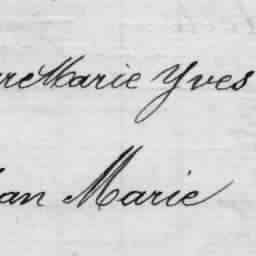 re Marie Yves
an Marie